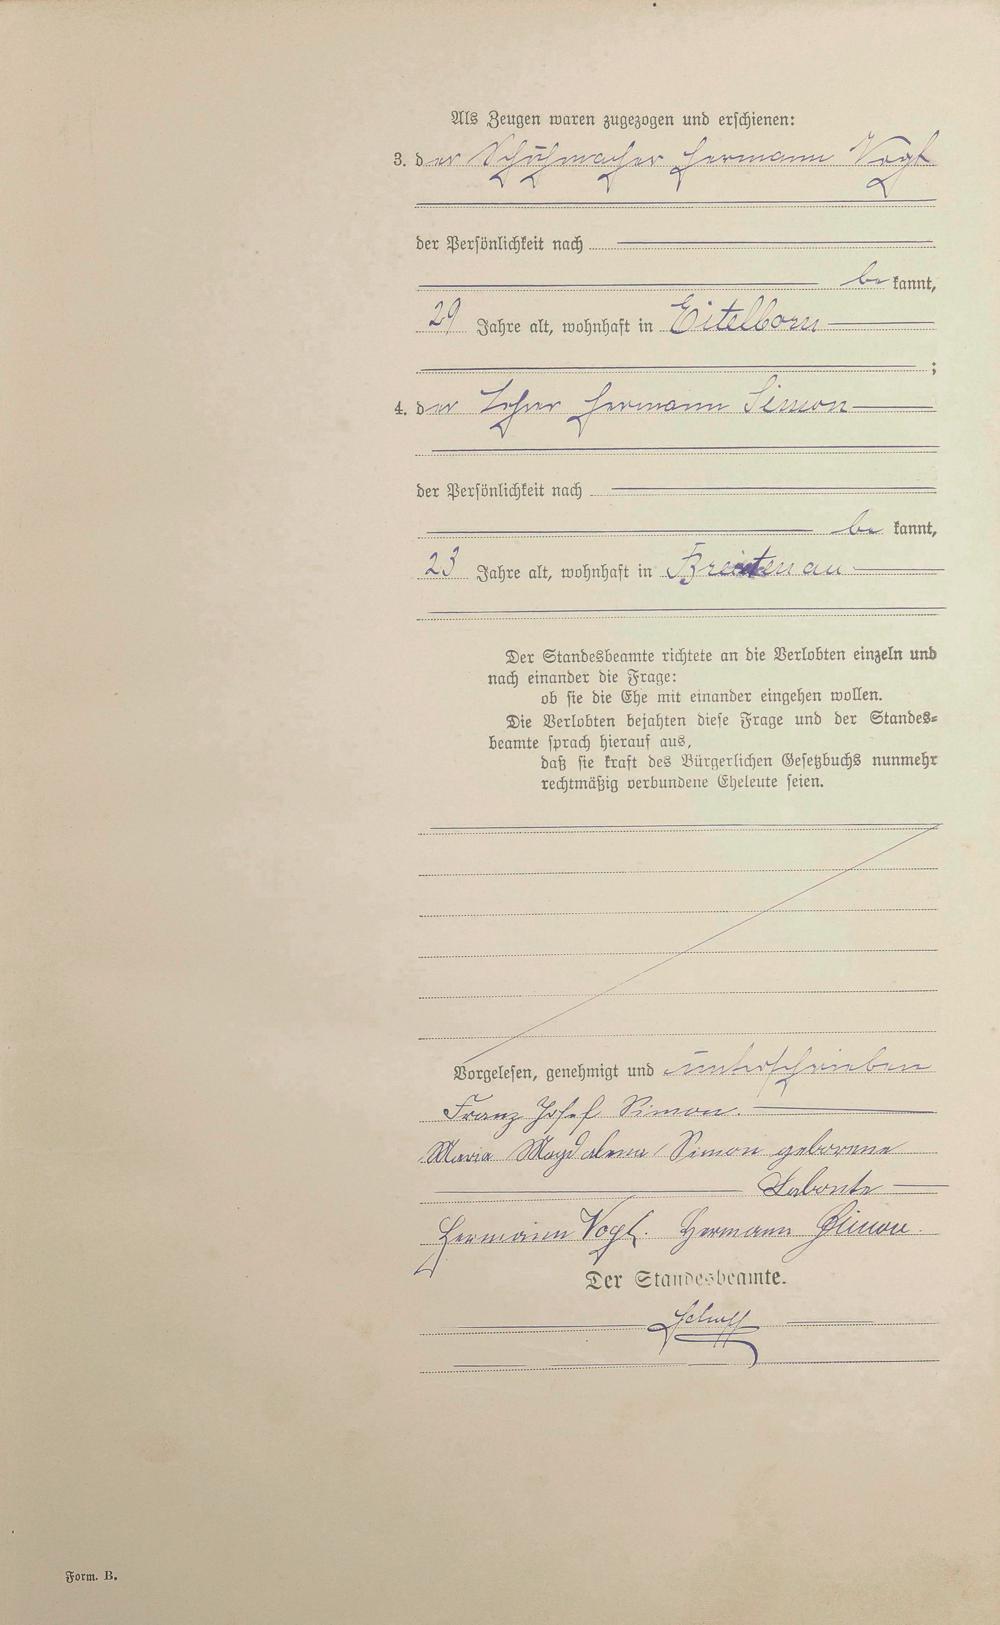 Als Zeugen waren zugezogen und erschienen:
3. der Schuhmacher Hermann Vogt
der Persönlichkeit nach
be kannt,
29 Jahre alt, wohnhaft in Eitelborn
;
4. der Lehrer Hermann Simon
der Persönlichkeit nach
be kannt,
23 Jahre alt, wohnhaft in Breitenau
Der Standesbeamte richtete an die Verlobten einzeln und
nach einander die Frage:
ob sie die Ehe mit einander eingehen wollen.
Die Verlobten bejahten diese Frage und der Standes=
beamte sprach hierauf aus,
daß sie kraft des Bürgerlichen Gesetzbuchs nunmehr
rechtmäßig verbundene Eheleute seien.
Vorgelesen, genehmigt und unterschrieben
Franz Josef Simon
Maria Magdalena Simon geborene
Labonte
Hermann Vogt. Hermann Simon.
Der Standesbeamte.
Form. B.